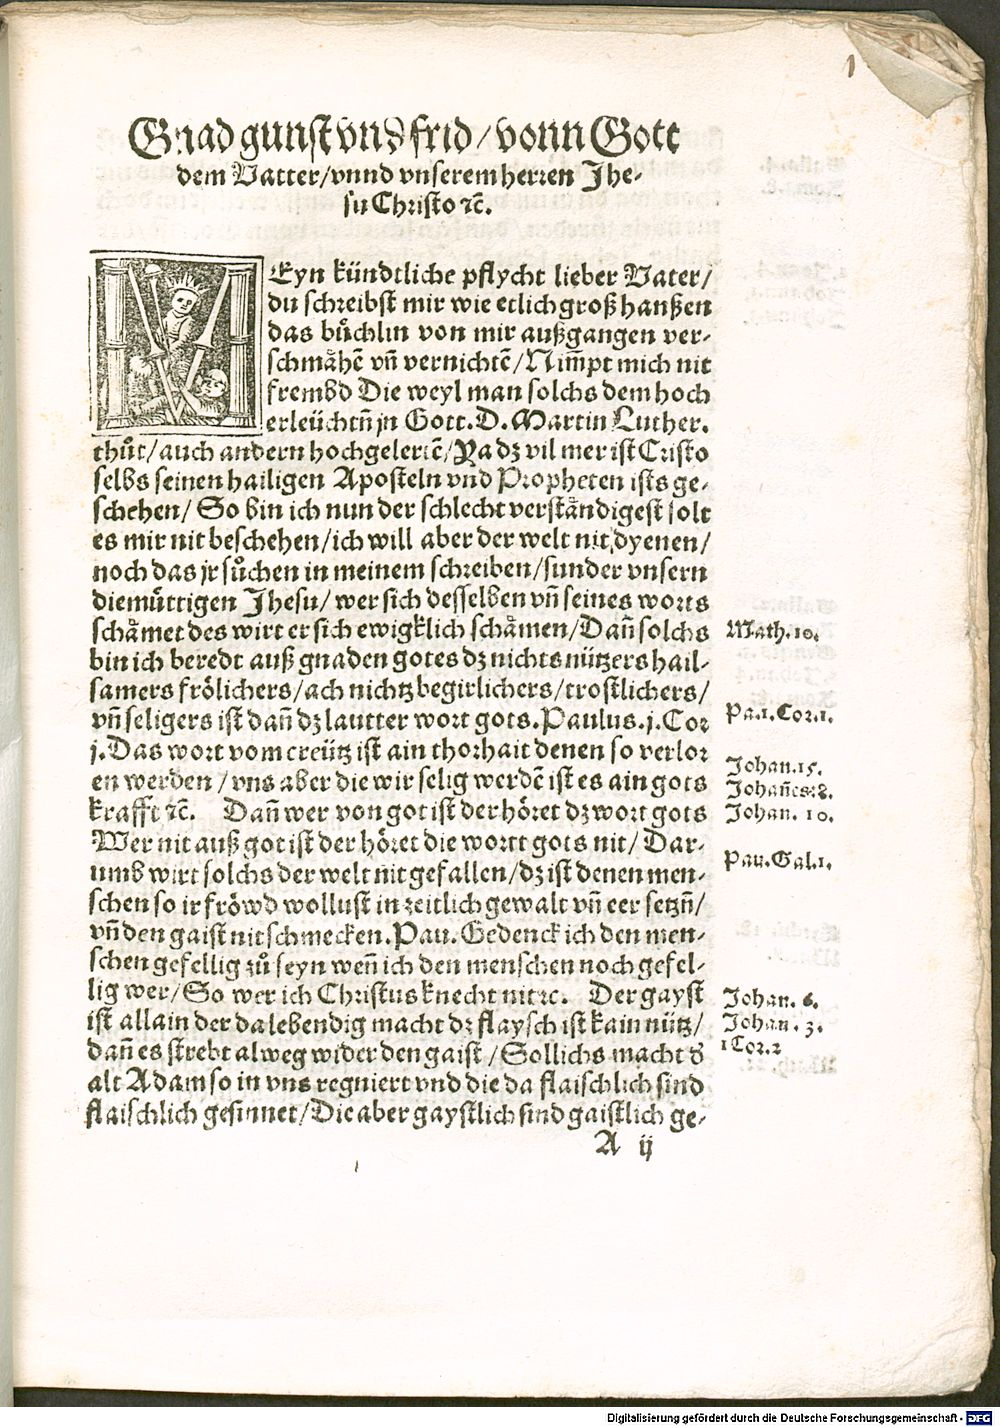 1
Gnad gunst vnd frid / vonn Gott
dem Vatter / vnnd vnserem herren Jhe-
su Christo ⁊c̃.
MEyn kündtliche pflycht lieber Vater /
du schreibst mir wie etlich groß hanßen
das bu̍chlin von mir außgangen ver-
schmåhẽ vñ vernichtẽ / Nim̃pt mich nit
frembd Die weyl man solchs dem hoch
erleüchtñ jn Gott. D. Martin Luther.
thůt / auch andern hochgelertẽ / Ya dz vil mer ist Cristo
selbs seinen hailigen Aposteln vnd Propheten ists ge-
schehen / So bin ich nun der schlecht verståndigest solt
es mir nit beschehen / ich will aber der welt nit dyenen /
noch das jr sůchen in meinem schreiben / sunder vnsern
diemu̍ttigen Jhesu / wer sich desselben vñ seines worts
schåmet des wirt er sich ewigklich schåmen / Dañ solchs
Math. 10.
bin ich beredt auß gnaden gotes dz nichts nützers hail-
samers frölichers / ach nichtz begirlichers / trostlichers /
vñ seligers ist dañ dz lautter wort gots. Paulus. j. Cor
Pa. 1. Cor. 1.
j. Das wort vom creütz ist ain thorhait denen so verlor
en werden / vns aber die wir selig werdẽ ist es ain gots
Johan. 15.
Johañes: 8.
krafft ⁊c̃. Dañ wer von got ist der höret dz wort gots
Johan. 10.
Wer nit auß got ist der höret die wortt gots nit / Dar-
umb wirt solchs der welt nit gefallen / dz ist denen men-
Pau. Gal. 1.
schen so ir fröwd wollust in zeitlich gewalt vñ eer setzñ /
vñ den gaist nit schmecken. Pau. Gedenck ich den men-
schen gefellig zů seyn weñ ich den menschen noch gefel-
lig wer / So wer ich Christus knecht nit ⁊c. Der gayst
Johan. 6.
ist allain der da lebendig macht dz flaysch ist kain nütz /
Johan. 3.
dañ es strebt alweg wider den gaist / Sollichs macht d̕
1 Cor. 2
alt Adam so in vns regniert vnd die da flaischlich sind
flaischlich gesinnet / Die aber gaystlich sind gaistlich ge-
A ij
Digitalisierung gefördert durch die Deutsche Forschungsgemeinschaft - DFG